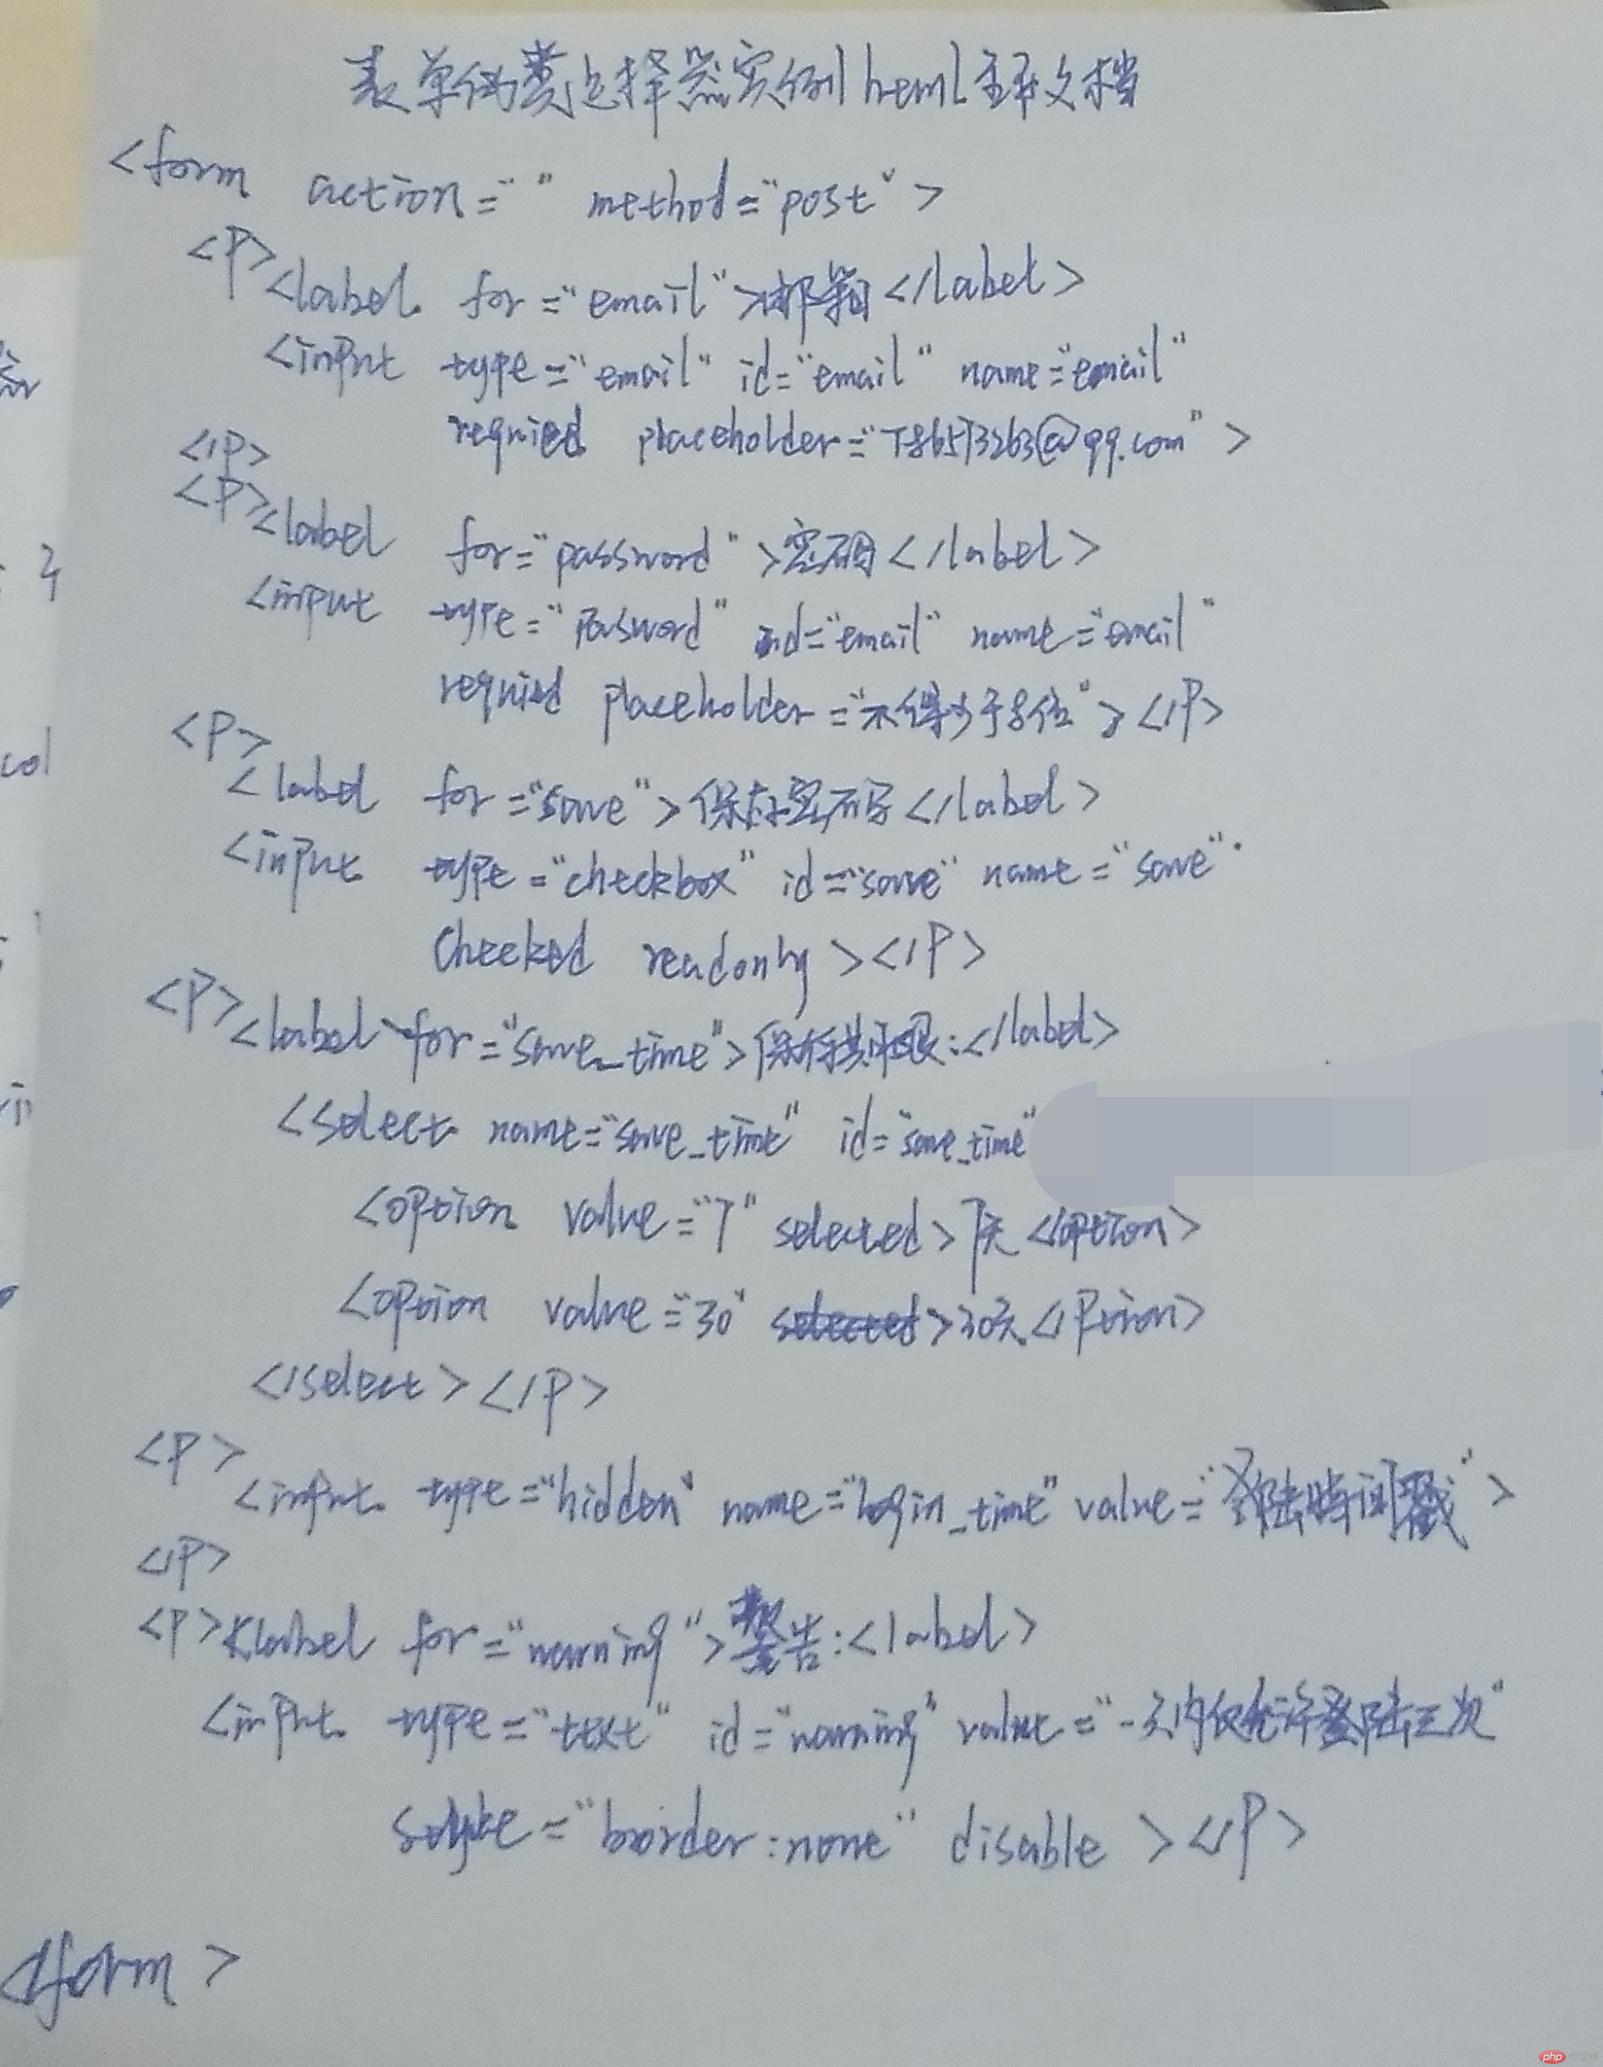 表单伪类选择器实例html主要文档
<form action="" method="post">
<P><label for="email">邮箱</label>
<input type="email" id="email" name="email"
requried placeholder="@qq.com">
</P>
<P><label for="password">密码</label>
<input type="Password" id="email" name="email"
requried placeholder="不得少于8位"></P>
<P>
<label for="save">保存密码</label>
<input type="checkbox" id="save" name="save"
Checked readonly></P>
<P><label for="save_time">保存期限:</label>
<select name="save_time" id="save_time"
<option value="7" selected>7天</option>
<option value="30" >30天</Ption>
</select></P>
<P>
<input type="hidden" name="login_time" value="登陆时间戳">
</P>
<P><label for="warning">警告:<label>
<input type="text" id="warning" value="一天内仅允许登陆三次"
="border:none" disable></P>
</form>
php